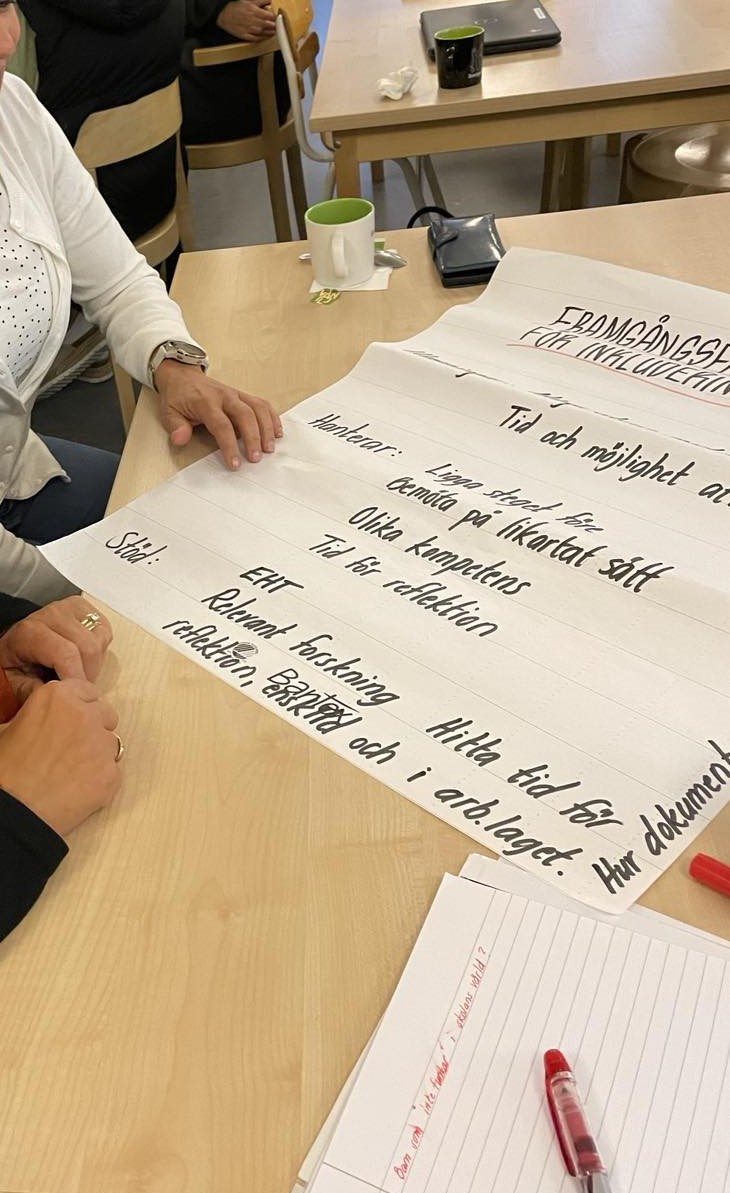 FRAMGÅNGSF
FÖR INKLUDERIN
Tid och möjlighet at
Hanterar: Ligga steget före
Bemöta på likartat sätt
Olika kompetens
Tid för reflektion
Stöd:
EHT
Relevant forskning Hitta tid för
reflektion, enskild och i arb.laget.
Hur dokument
Barn som "inte funkar" i skolans värld?